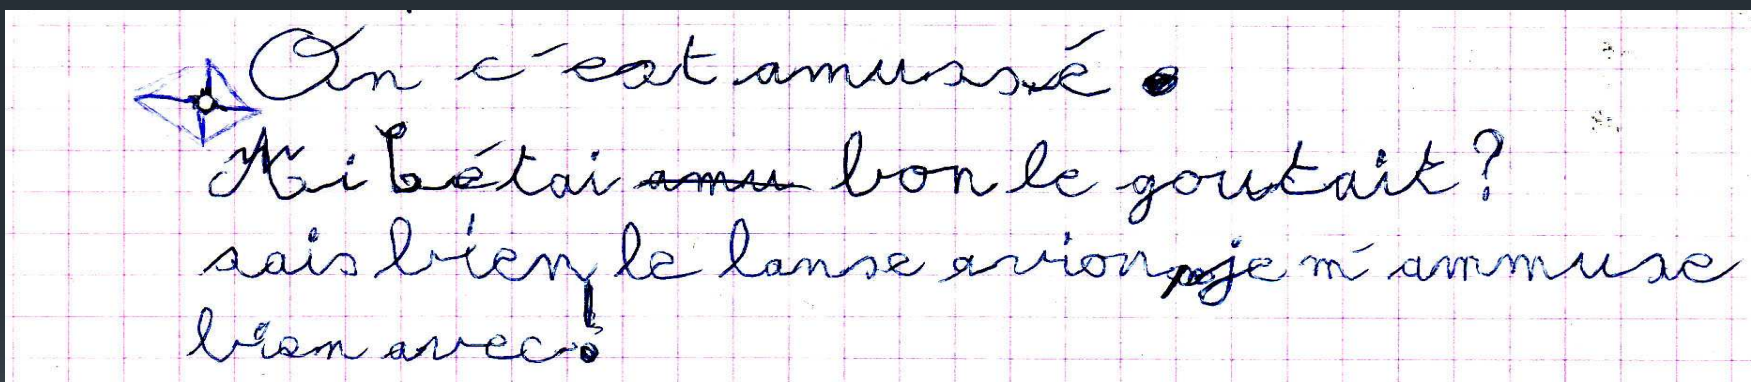 On c'est amussé.
bon le goutait?
sais bien le lanse avion je m'ammuse
bien avec!